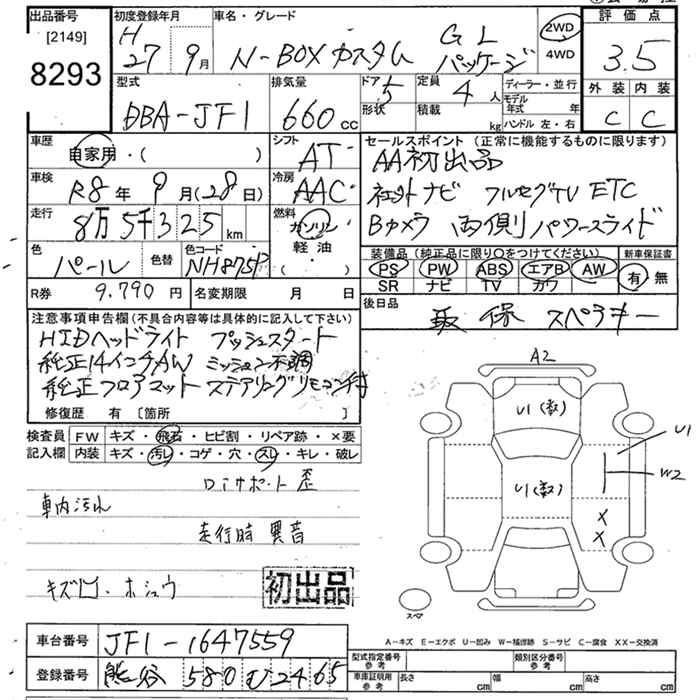 出品番号
[2149]
8293
初度登録年月
H
27 9月
車名・グレード
N-BOXカスタム GL パッケージ
2WD
4WD
評価点
3.5
外装 内装
C C
型式
DBA-JF1
排気量
660cc
ドア
5
形状
定員
4人
積載
kg
ディーラー・並行
モデル年式 年
ハンドル 左・右
車歴
自家用・( )
シフト
AT
セールスポイント (正常に機能するものに限ります)
AA初出品
車検
R8年 9月(28日)
冷房
AAC
ナビ フルセグTV ETC
走行
8万5千325km
燃料
ガソリン
軽油
( )
Bカメラ 両側パワースライド
色
パール
色替
色コード
NH875P
装備品 (純正品に限り○をつけてください)
PS PW ABS エアB AW
SR ナビ TV カワ
新車保証書
有 無
R券 9,790円
名変期限 月 日
後日品
取 保 スペアキー
注意事項申告欄(不具合内容等は具体的に記入して下さい)
HIDヘッドライト プッシュスタート
純正14インチAW ミッション不調
純正フロアマット ステアリングリモコン付
修復歴 有 [箇所 ]
検査員
記入欄
FW キズ・飛石・ヒビ割・リペア跡・×要
内装 キズ・汚レ・コゲ・穴・スレ・キレ・破レ
サポート歪
車内汚れ
走行時異音
キズ凹・ホシュウ
初出品
A2
U1(数)
U1
W2
U1(数)
X
X
スペア
A-キズ E-エクボ U-凹み W-補修跡 S-サビ C-腐食 XX-交換済
車台番号
JF1-1647559
登録番号
熊谷 580 む 2465
型式指定番号
参考
類別区分番号
参考
車庫証明用
参考
長さ cm
幅 cm
高さ cm